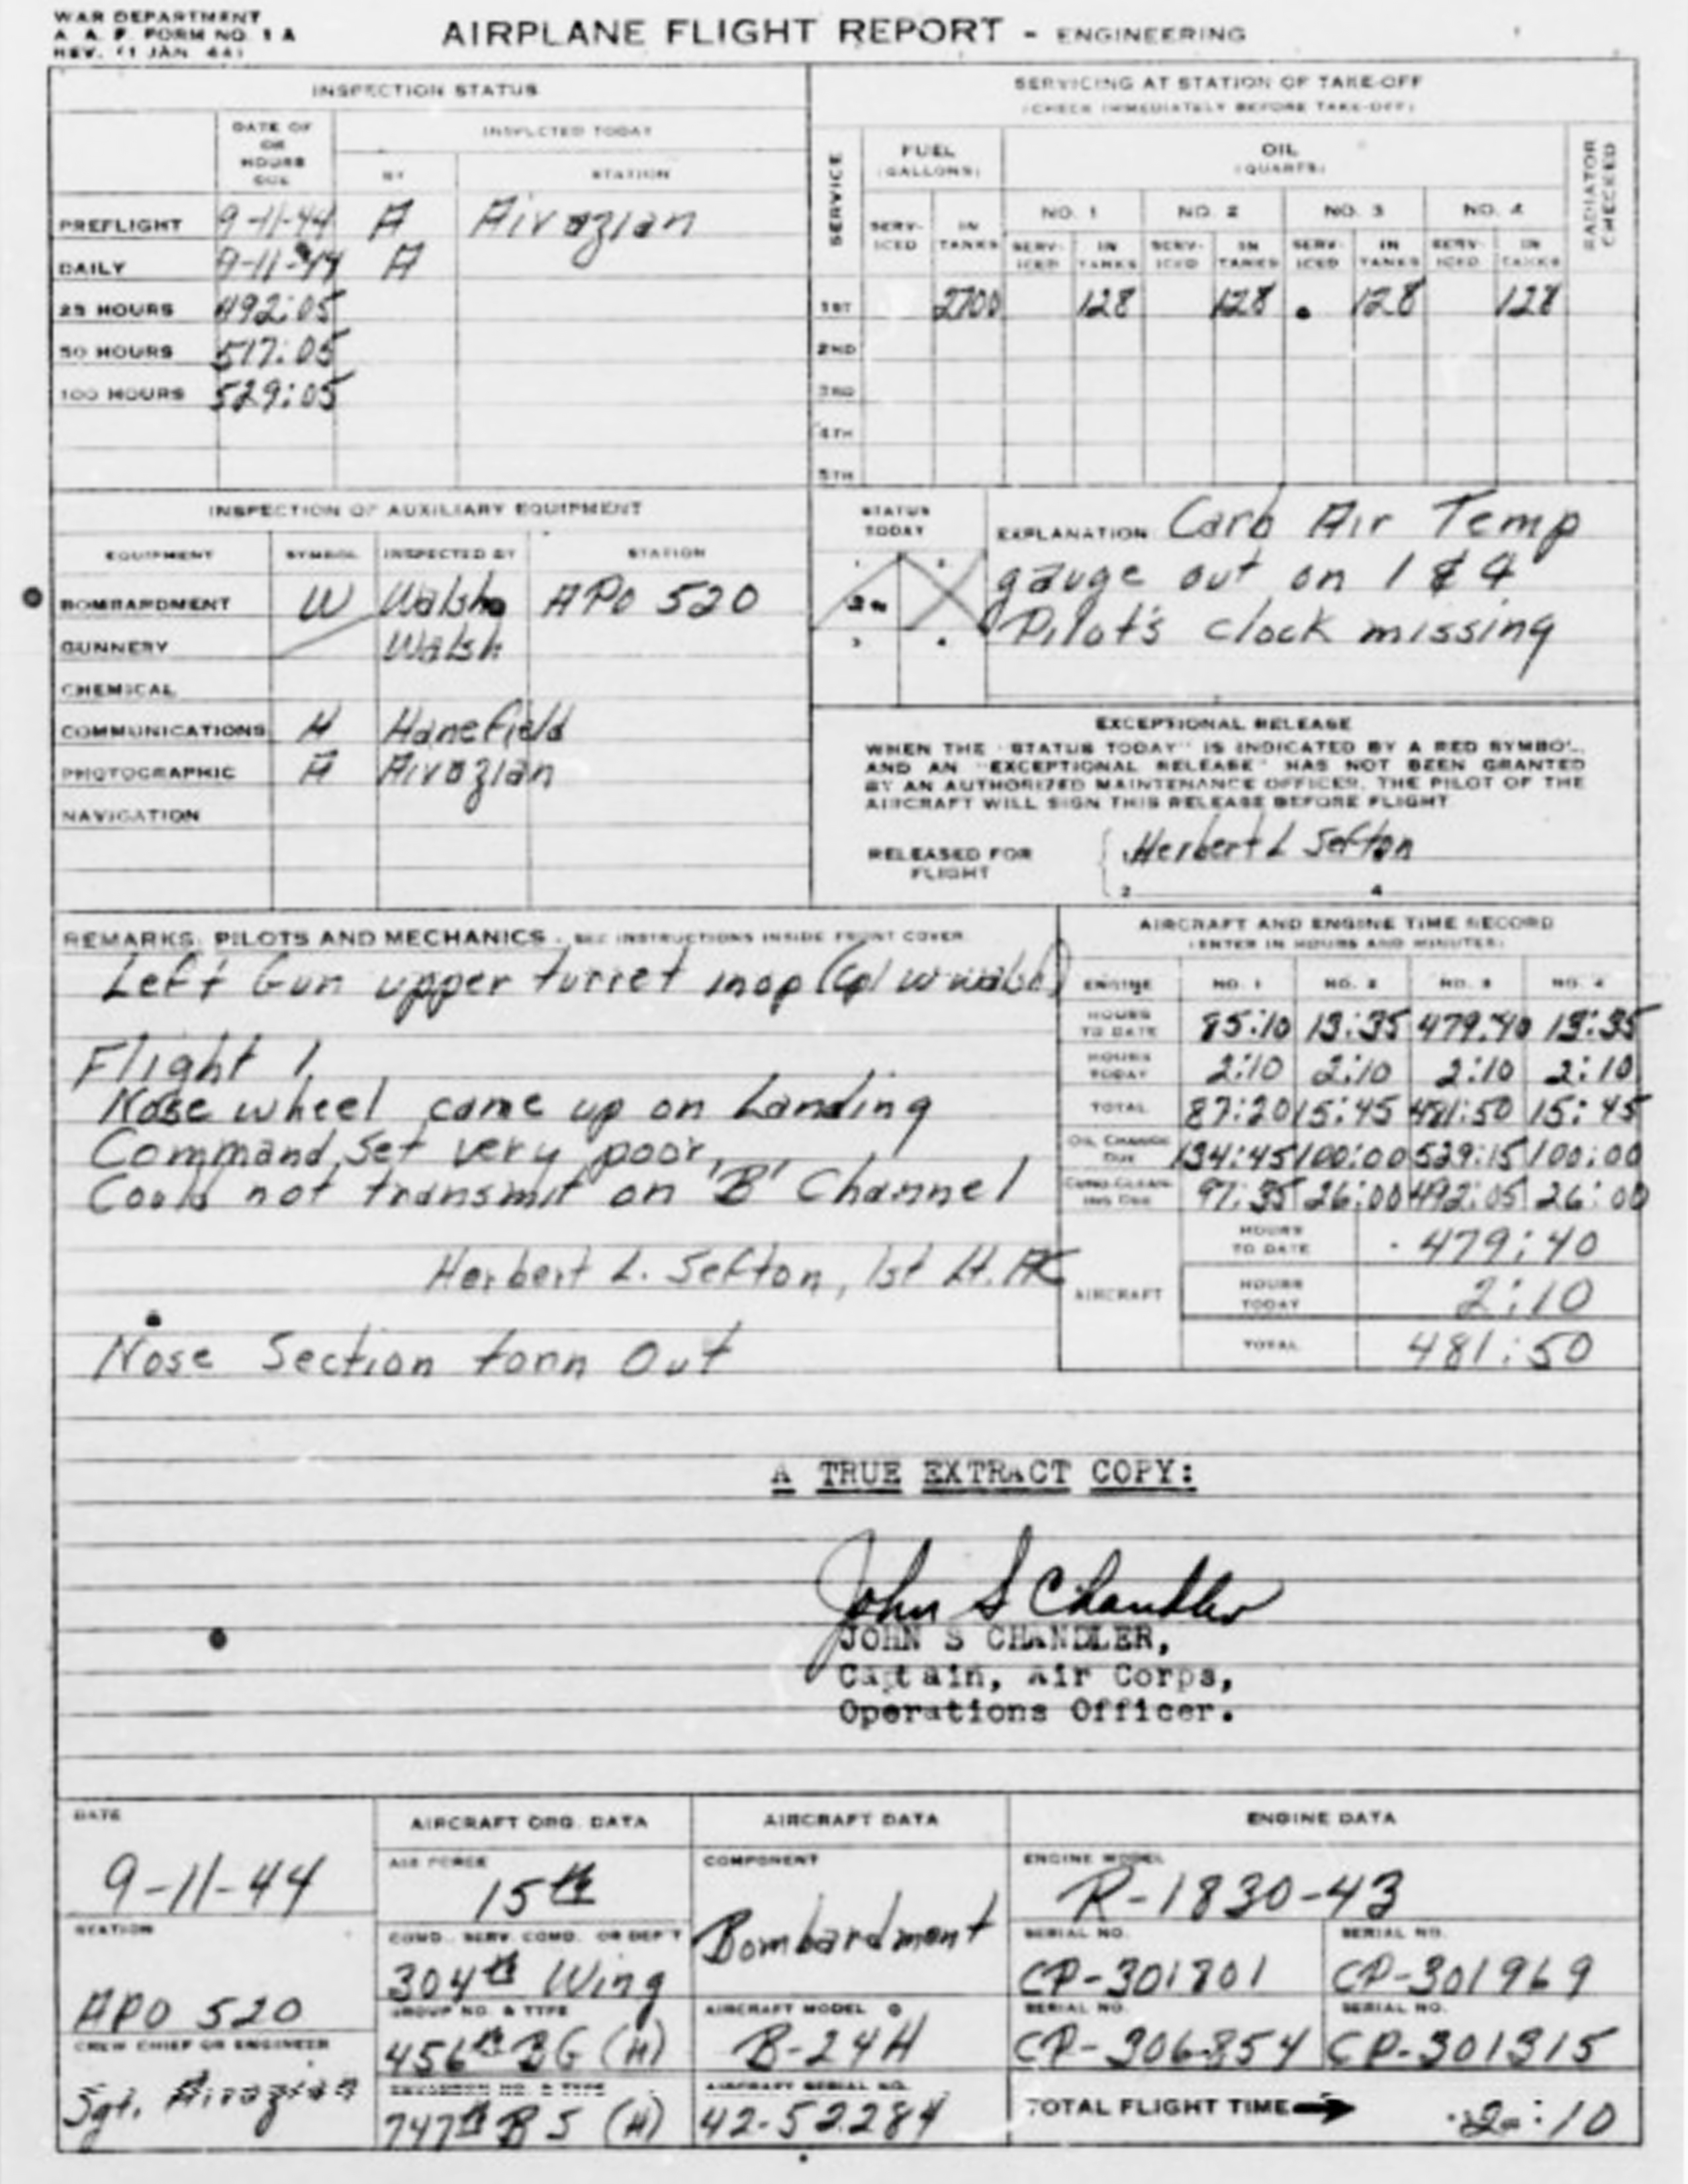 WAR DEPARTMENT
A. A. F. FORM NO. 1 A
REV. (1 JAN 44)
AIRPLANE FLIGHT REPORT - ENGINEERING
INSPECTION STATUS
DATE OF OR HOURS DUE
INSPECTED TODAY
BY STATION
PREFLIGHT 9-11-44 A Aivazian
DAILY 9-11-44 A
25 HOURS 492:05
50 HOURS 517:05
100 HOURS 529:05
SERVICING AT STATION OF TAKE-OFF
(CHECK IMMEDIATELY BEFORE TAKE-OFF)
SERVICE
FUEL (GALLONS)
OIL (QUARTS)
RADIATOR CHECKED
NO. 1 NO. 2 NO. 3 NO. 4
SERV-ICED IN TANKS SERV-ICED IN TANKS SERV-ICED IN TANKS SERV-ICED IN TANKS SERV-ICED IN TANKS
1ST 2700 128 128 128 128
2ND
3RD
4TH
5TH
INSPECTION OF AUXILIARY EQUIPMENT
EQUIPMENT SYMBOL INSPECTED BY STATION
BOMBARDMENT W Walsh APO 520
GUNNERY Walsh
CHEMICAL
COMMUNICATIONS H Hanefield
PHOTOGRAPHIC A Aivazian
NAVIGATION
STATUS TODAY
EXPLANATION Carb Air Temp
gauge out on 1 & 4
Pilot's clock missing
EXCEPTIONAL RELEASE
WHEN THE "STATUS TODAY" IS INDICATED BY A RED SYMBOL,
AND AN "EXCEPTIONAL RELEASE" HAS NOT BEEN GRANTED
BY AN AUTHORIZED MAINTENANCE OFFICER, THE PILOT OF THE
AIRCRAFT WILL SIGN THIS RELEASE BEFORE FLIGHT
RELEASED FOR FLIGHT
1 Herbert L Sefton
2 4
REMARKS: PILOTS AND MECHANICS - SEE INSTRUCTIONS INSIDE FRONT COVER
Left Gun upper turret inop (Cpl W Walsh)
Flight 1.
Nose wheel came up on Landing
Command Set very poor,
Could not transmit on 'B' Channel
Herbert L. Sefton, 1st Lt. AC
Nose Section torn Out
AIRCRAFT AND ENGINE TIME RECORD
(ENTER IN HOURS AND MINUTES)
ENGINE NO. 1 NO. 2 NO. 3 NO. 4
HOURS TO DATE 85:10 13:35 479:40 13:35
HOURS TODAY 2:10 2:10 2:10 2:10
TOTAL 87:20 15:45 481:50 15:45
OIL CHANGE DUE 134:45 100:00 529:15 100:00
97:35 26:00 492:05 26:00
AIRCRAFT
HOURS TO DATE 479:40
HOURS TODAY 2:10
TOTAL 481:50
A TRUE EXTRACT COPY:
John S Chandler
JOHN S CHANDLER,
Captain, Air Corps,
Operations Officer.
DATE
9-11-44
STATION
APO 520
CREW CHIEF OR ENGINEER
Sgt. Aivazian
AIRCRAFT ORG. DATA
AIR FORCE
15th
COMD., SERV. COMD. OR DEP'T
304th Wing
GROUP NO. & TYPE
456th BG (H)
SQUADRON NO. & TYPE
747th BS (H)
AIRCRAFT DATA
COMPONENT
Bombardment
AIRCRAFT MODEL
B-24H
AIRCRAFT SERIAL NO.
42-52284
ENGINE DATA
ENGINE MODEL
R-1830-43
SERIAL NO. SERIAL NO.
CP-301801 CP-301969
SERIAL NO. SERIAL NO.
CP-306854 CP-301315
TOTAL FLIGHT TIME 2:10